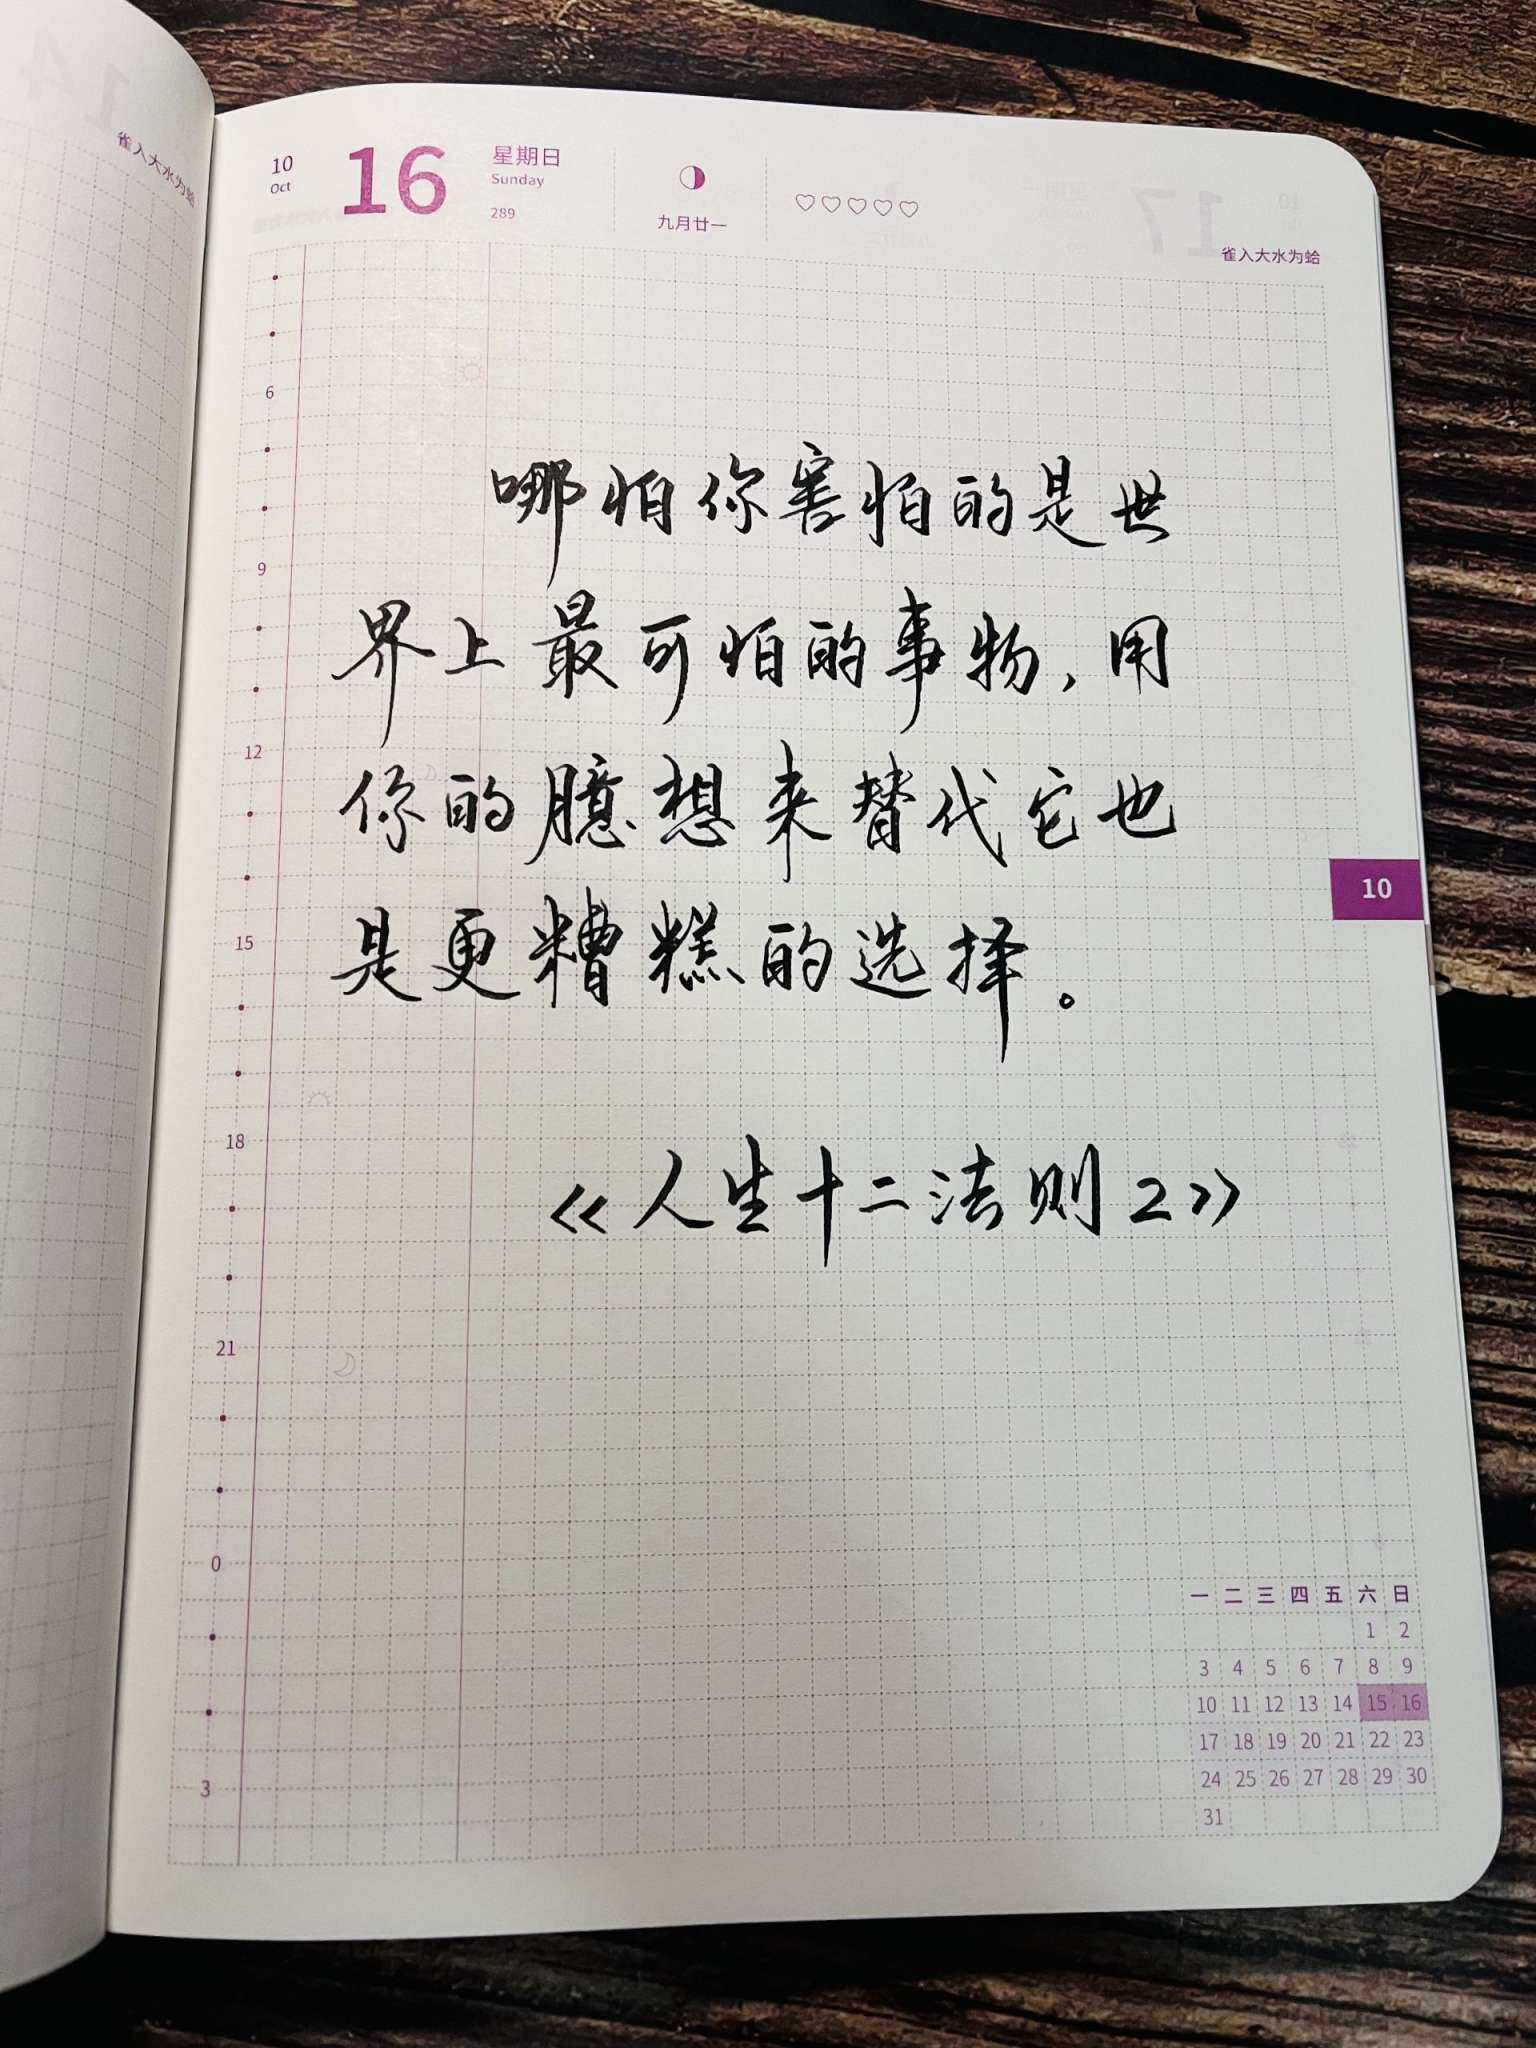 雀入大水为蛤
10
Oct
16
星期日
Sunday
289
九月廿一
雀入大水为蛤
6
哪怕你害怕的是世
9
界上最可怕的事物，用
12
你的臆想来替代它也
10
是更糟糕的选择。
15
18
《人生十二法则2》
21
0
3
一 二 三 四 五 六 日
1 2
3 4 5 6 7 8 9
10 11 12 13 14 15 16
17 18 19 20 21 22 23
24 25 26 27 28 29 30
31